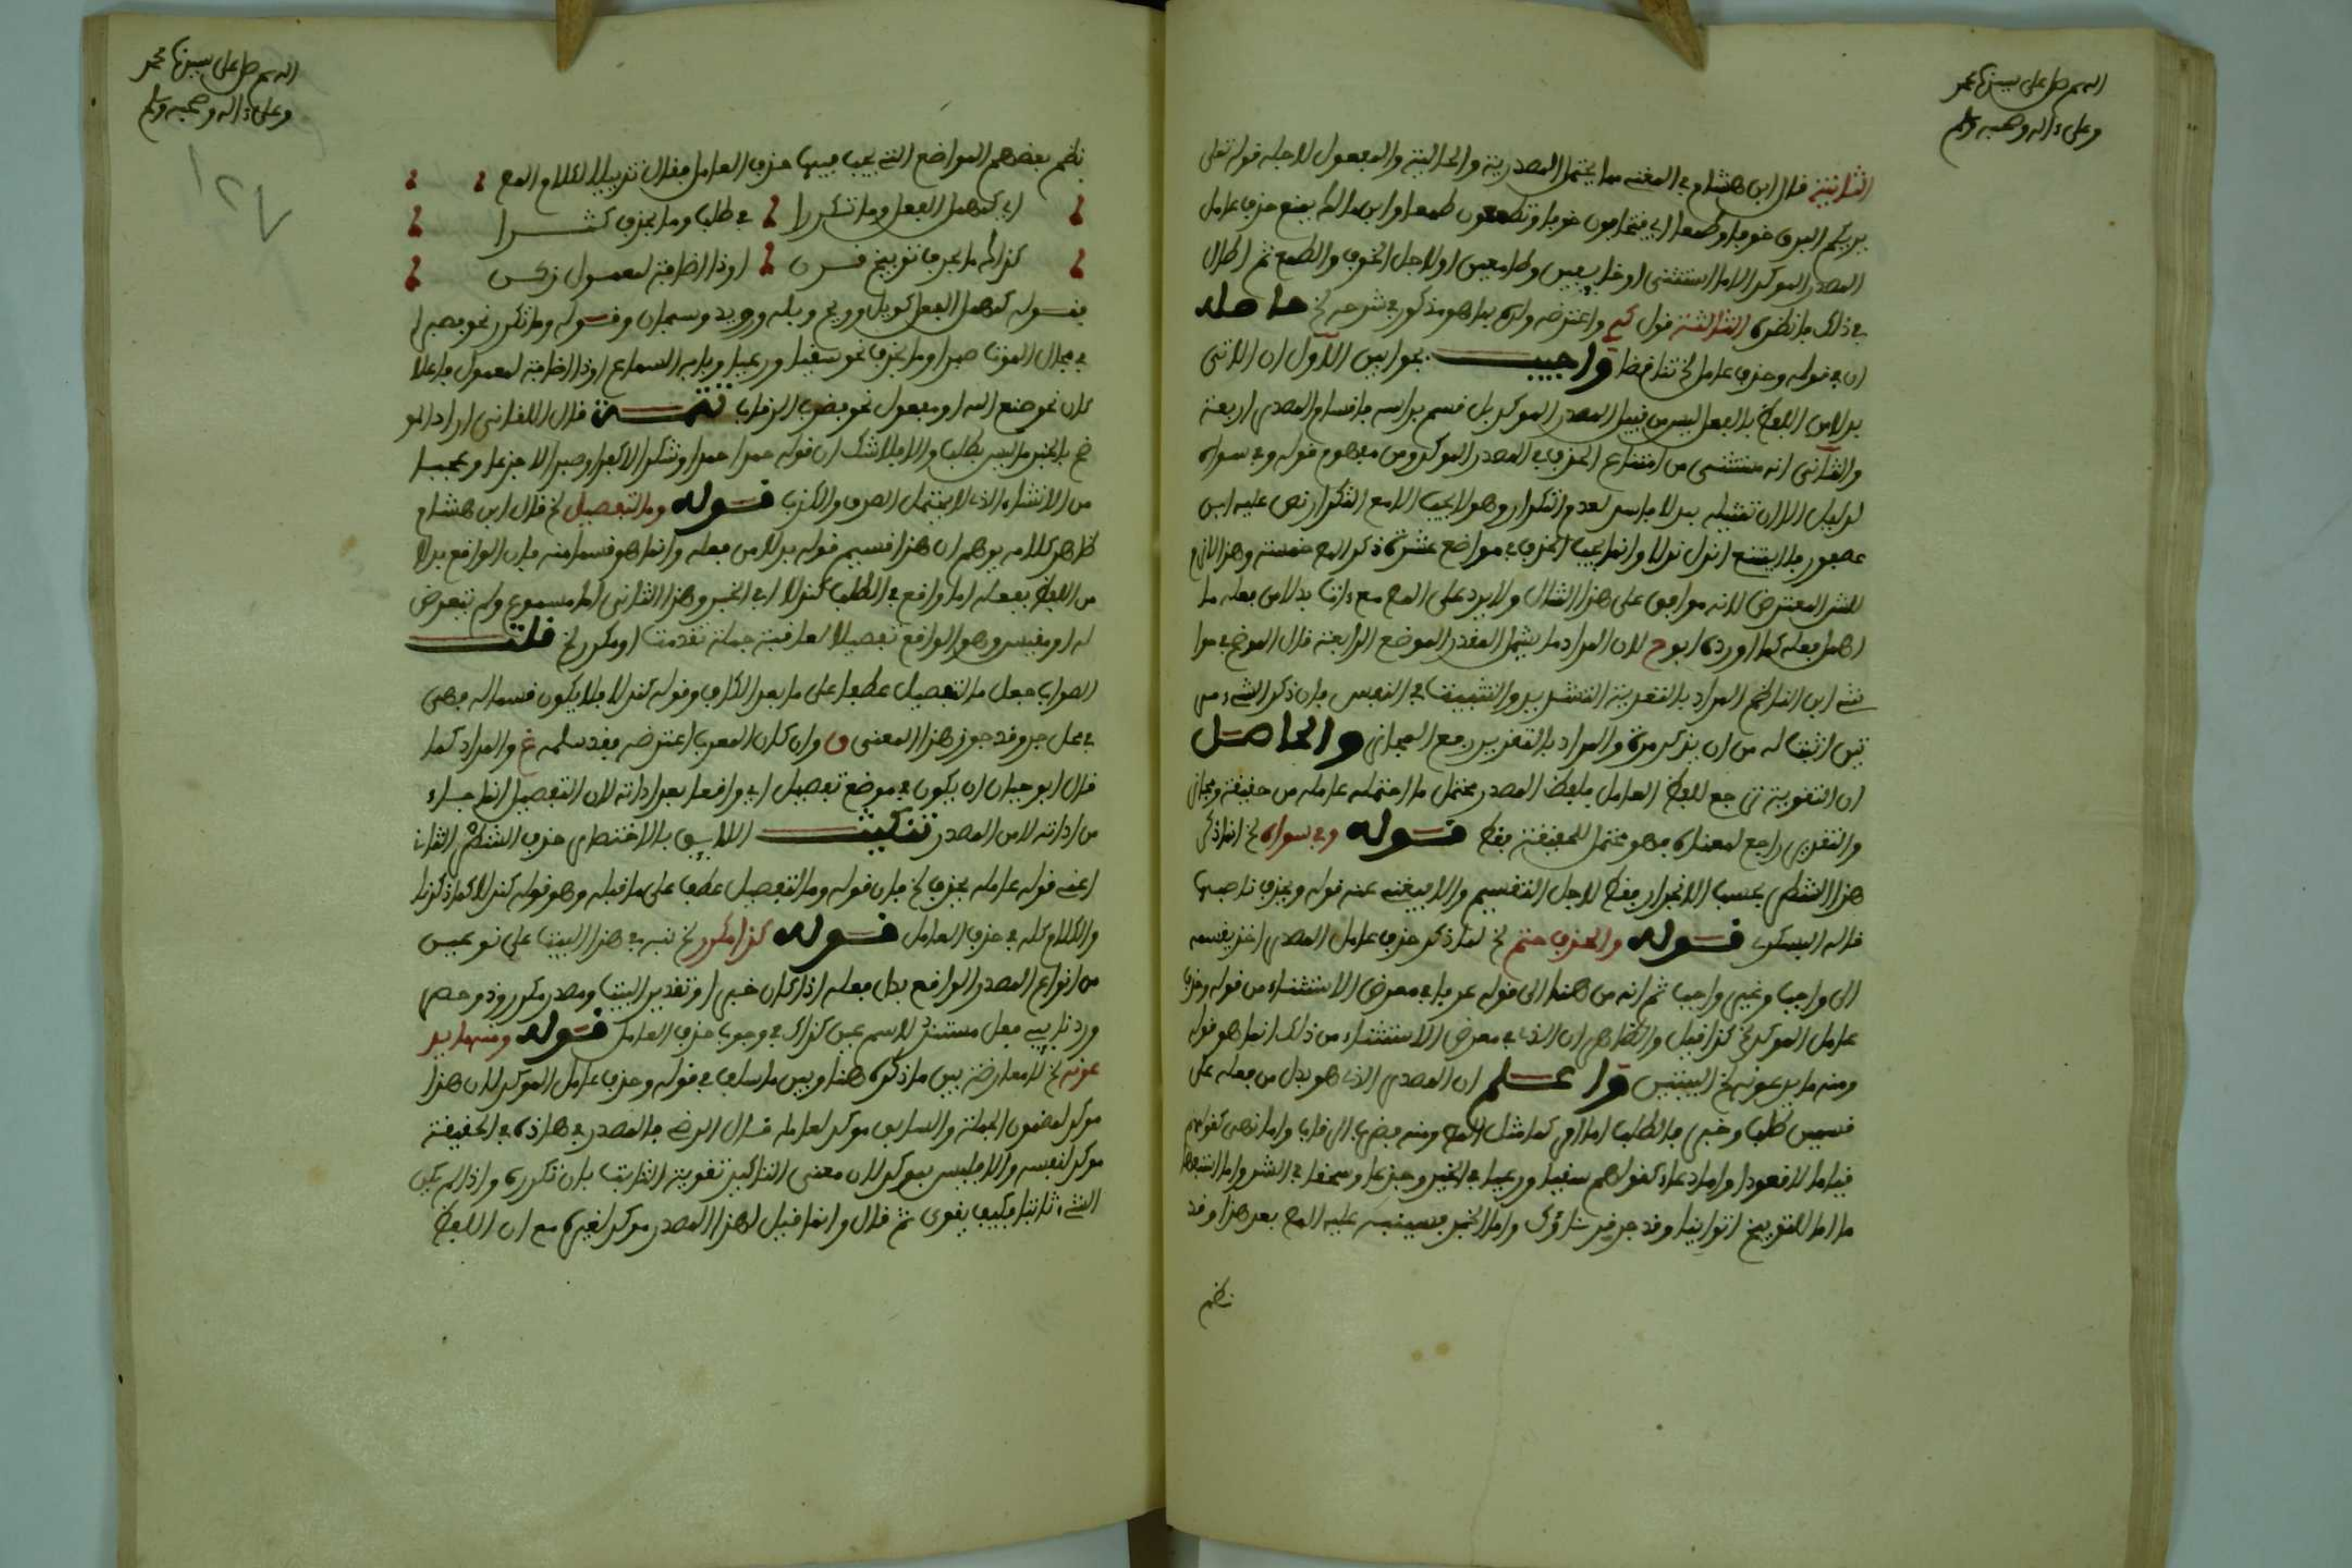 اللهم صل على سيدنا محمد
وعلى ءاله وصحبه وسلم
الثانية قال ابن هشام في المغني مما يحتمل المصدرية والحالية والمفعول لاجله قوله تعلى
يريكم البرق خوفا وطمعا اي فتخافون خوفا وتطمعون طمعا وابن مالك يمنع حذف عامل
المصدر الموكد الا ما استثنى او خايفين وطامعين او لاجل الخوف والطمع ثم اطال
في ذلك فانظره الثالثة قول واعترضه ولده بما هو مذكور في شرحه لخ حاصله
ان في قوله وحذف عامل لخ تناقضا واجيب بجوابين الاول ان الاتي
بدلا من اللفظ بالفعل ليس من قبيل المصدر الموكد بل قسم براسه فاقسام المصدر اربعة
والثاني انه مستثنى من امتناع الحذف في المصدر الموكد ومن مفهوم قوله وفي سواه
لدليل الا ان تمثيله بدلا فاسد لعدم التكرار وهو لا يجب الا مع التكرار نص عليه ابن
عصفور فلا يمتنع انزل نزلا وانما يجب الحذف في مواضع عشرة ذكر المص خمسة وهذا لازم
للش المعترض لانه موافق على هذا المثال ولا يرد على المص مع ءات بدلا من فعله ما
اهمل فعله كما اورده ابوح لان المراد ما يشمل المقدر الموضع الرابعة قال الموضح في حوا
شي ابن الناظم المراد بالتقوية التشديد والتثبيت في النفس فان ذكر الشيء مر
تين اثبت له من ان يذكر مرة والمراد بالتقرير رفع المجاز والحاصل
ان التقوية ترجع للفظ العامل فلفظ المصدر محتمل ما احتمله عامله من حقيقة ومجاز
والتقرير راجع لمعناه فهو محتمل للحقيقة فقط قوله وفي سواه لخ انما ذكر
هذا الشطر بحسب الانجرار فقط لاجل التقسيم والا فيغني عنه قوله ويحذف ناصبها
قاله البسكري قوله والحذف حتم لخ لما ذكر حذف عامل المصدر اخذ يقسمه
الى واجب وغير واجب ثم انه من هنا الى قوله عرفا في معرض الاستثناء من قوله وحذف
عامل الموكد لخ كذا قيل والظاهر ان الذي في معرض الاستثناء من ذلك انما هو قوله
ومنه ما يدعونه لخ البيتين واعلم ان المصدر الذي هو بدل من فعله على
قسمين طلب وخبر فالطلب اما امر كما مثل المص ومنه فضرب الرقاب واما نهي كقولهم
قياما لا قعودا واما دعاء كقولهم سقيا ورعيا في الخير وجدعا وسحقا في الشر واما استفها
ما اما للتوبيخ اتوانيا وقد جد قرناؤك واما الخبر فسينبه عليه المص بعد هذا وقد
نظم
اللهم صل على سيدنا محمد
وعلى ءاله وصحبه وسلم
نظم بعضهم المواضع التي يجب فيها حذف العامل فقال تذييلا لكلام المص
اي كمهمل الفعل وما تكررا في طلب وما بحذف كثرا
كذاك ما بحرف توبيخ قرن او ذا اضافة لمعمول زكن
فقوله كمهمل الفعل كويل وويح وبله ورويد وسبحان وقوله وما تكرر نحو فصبرا
في مجال الموت صبرا وما بحذف نحو سقيا ورعيا وبابه السماع او ذا اضافة لمعمول فاعلا
كان نحو صنع الله او مفعول نحو فضرب الرقاب تتمة قال اللقاني اراد المو
ضح بالخبر ما ليس بطلب والا فلا شك ان قوله حمدا حمدا وشكرا لا كفرا وصبرا لا جزعا وعجبا
من الانشاء الذي لا يحتمل الصدق والكذب قوله وما لتفصيل لخ قال ابن هشام
ظاهر كلامه يوهم ان هذا قسيم قوله بدلا من فعله وانما هو قسما منه فان الواقع بدلا
من اللفظ بفعله اما واقع في الطلب كندلا او في الخبر وهذا الثاني اما مسموع ولم يتعرض
له او مقيس وهو الواقع تفصيلا لعاقبة جملة تقدمت او مكرر لخ قلت
الصواب جعل ما لتفصيل عطفا على ما بعد الكاف وقوله كندلا فلا يكون قسما له فهي
في محل جر وقد جوز هذا المعنى ق وان كان المعرب اعترضه فقد سلمه غ والمراد كما
قال ابو حيان ان يكون في موضع تفصيل اي واقعا بعد اداته لان التفصيل انما جاء
من اداته لا من المصدر تنكيت اللايق بالاختصار حذف الشطر الثاني
اعني قوله عامله يحذف لخ فان قوله وما لتفصيل عطف على ما قبله وهو قوله كندلا كما ذكرنا
والكلام كله في حذف العامل قوله كذا مكرر لخ نبه في هذا البيت على نوعين
من انواع المصدر الواقع بدل فعله اذا كان خبرا وتقدير البيت ومصدر مكرر وذو حصر
ورد نايب فعل مستند لاسم عين كذاك في وجوب حذف العامل قوله ومنه ما يد
عونه لخ لا معارضة بين ما ذكره هنا وبين ما سلف في قوله وحذف عامل الموكد لان هذا
موكد لمضمون الجملة والسابق موكد لعامله قال الرضي فالمصدر في هاذه في الحقيقة
موكد لنفسه والا فليس بموكد لان معنى التاكيد تقوية الثابت بان تكرره واذا لم يكن
الشيء ثابتا فكيف يقوى ثم قال وانما قيل لهذا المصدر موكد لغيره مع ان اللفظ